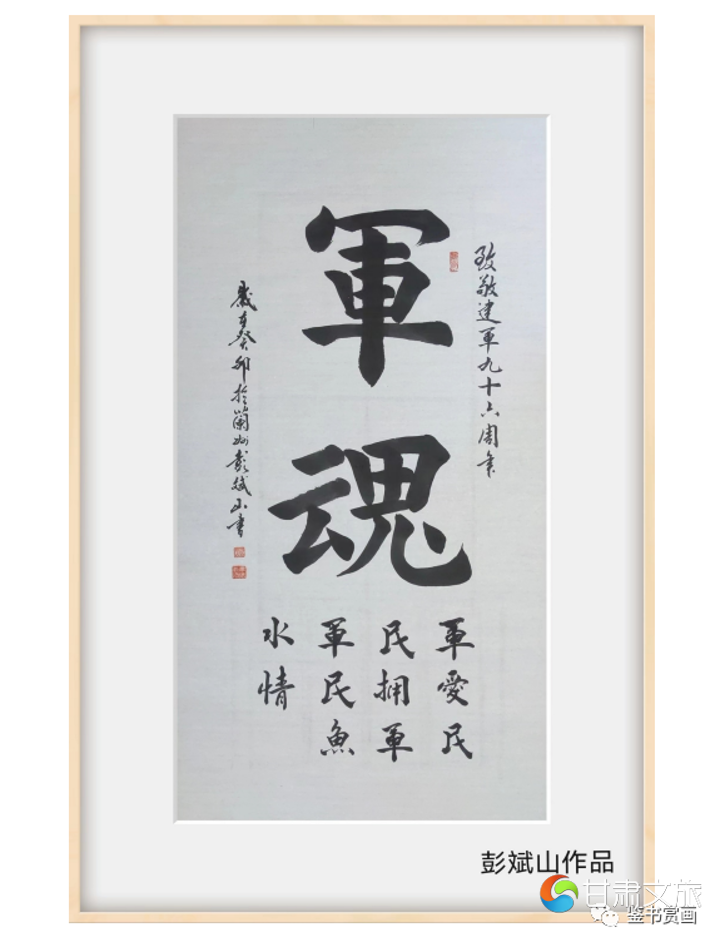 致敬建軍九十六周年
軍魂
軍愛民
民拥軍
軍民魚
水情
歲在癸卯於蘭州彭斌山書
彭斌山作品
甘肃文旅
鉴书赏画